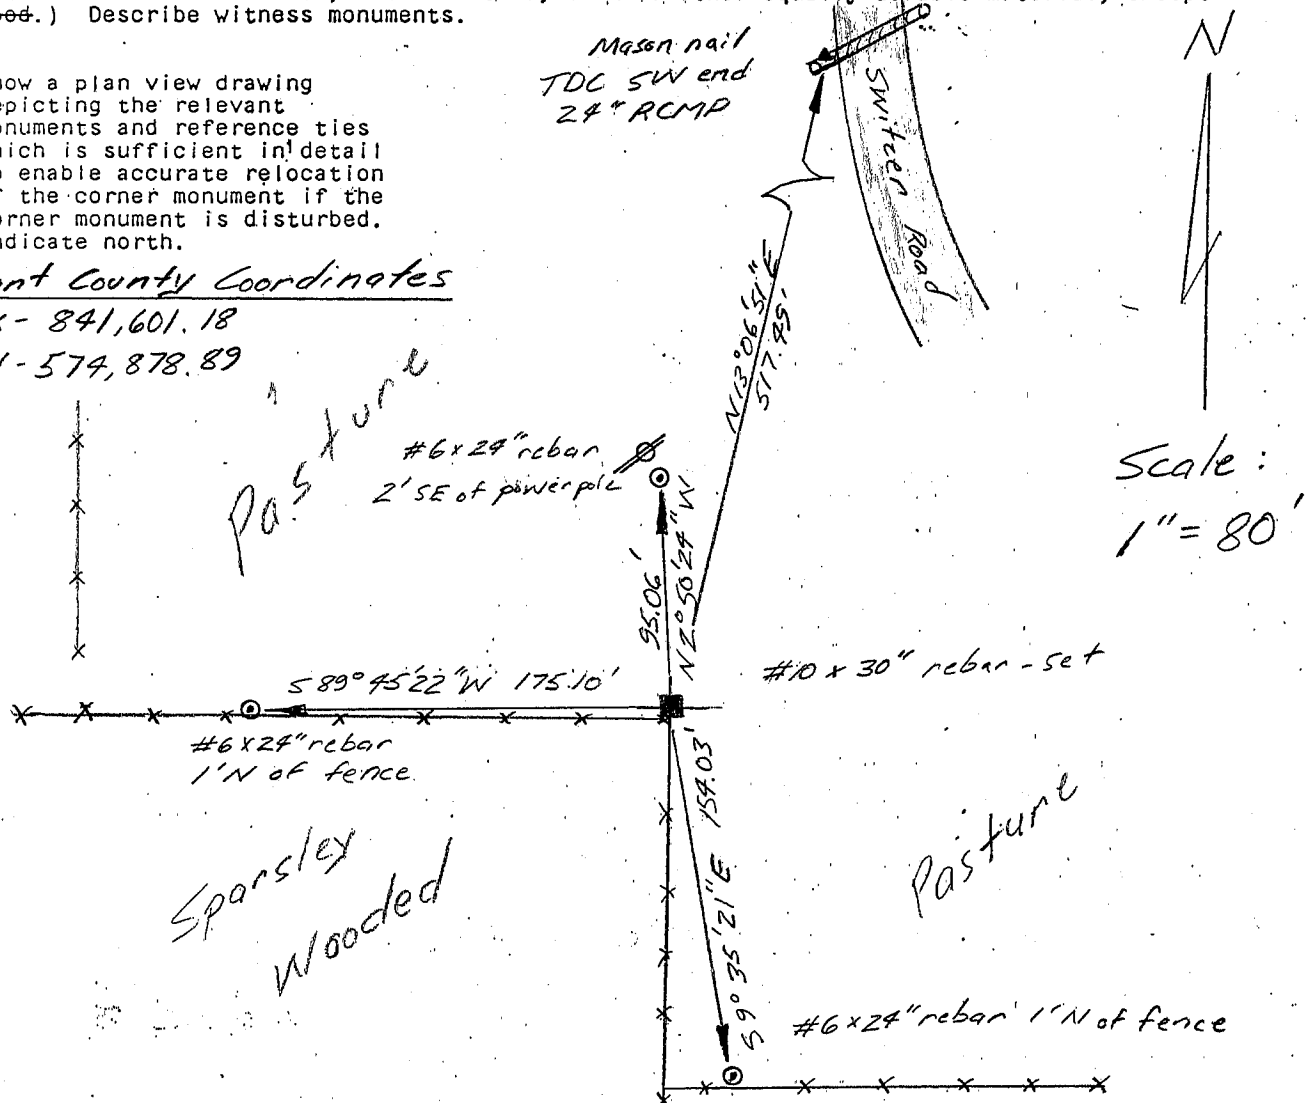 Describe witness monuments.
a plan view drawing
the relevant
and reference ties
is sufficient in detail
enable accurate relocation
the corner monument if the
monument is disturbed.
north.
County Coordinates
- 841,601.18
- 574,878.89
Mason nail
TDC SW end
24" RCMP
Switzer Road
N
Scale :
1" = 80'
Pasture
#6 x 24" rebar
2' SE of power pole
N 13° 06' 51" E
517.49'
95.06'
N 2° 50' 24" W
#10 x 30" rebar - set
S 89° 45' 22" W 175.10'
#6 x 24" rebar
1' N of fence
Sparsley
Wooded
S 9° 35' 21" E 154.03'
Pasture
#6 x 24" rebar 1' N of fence